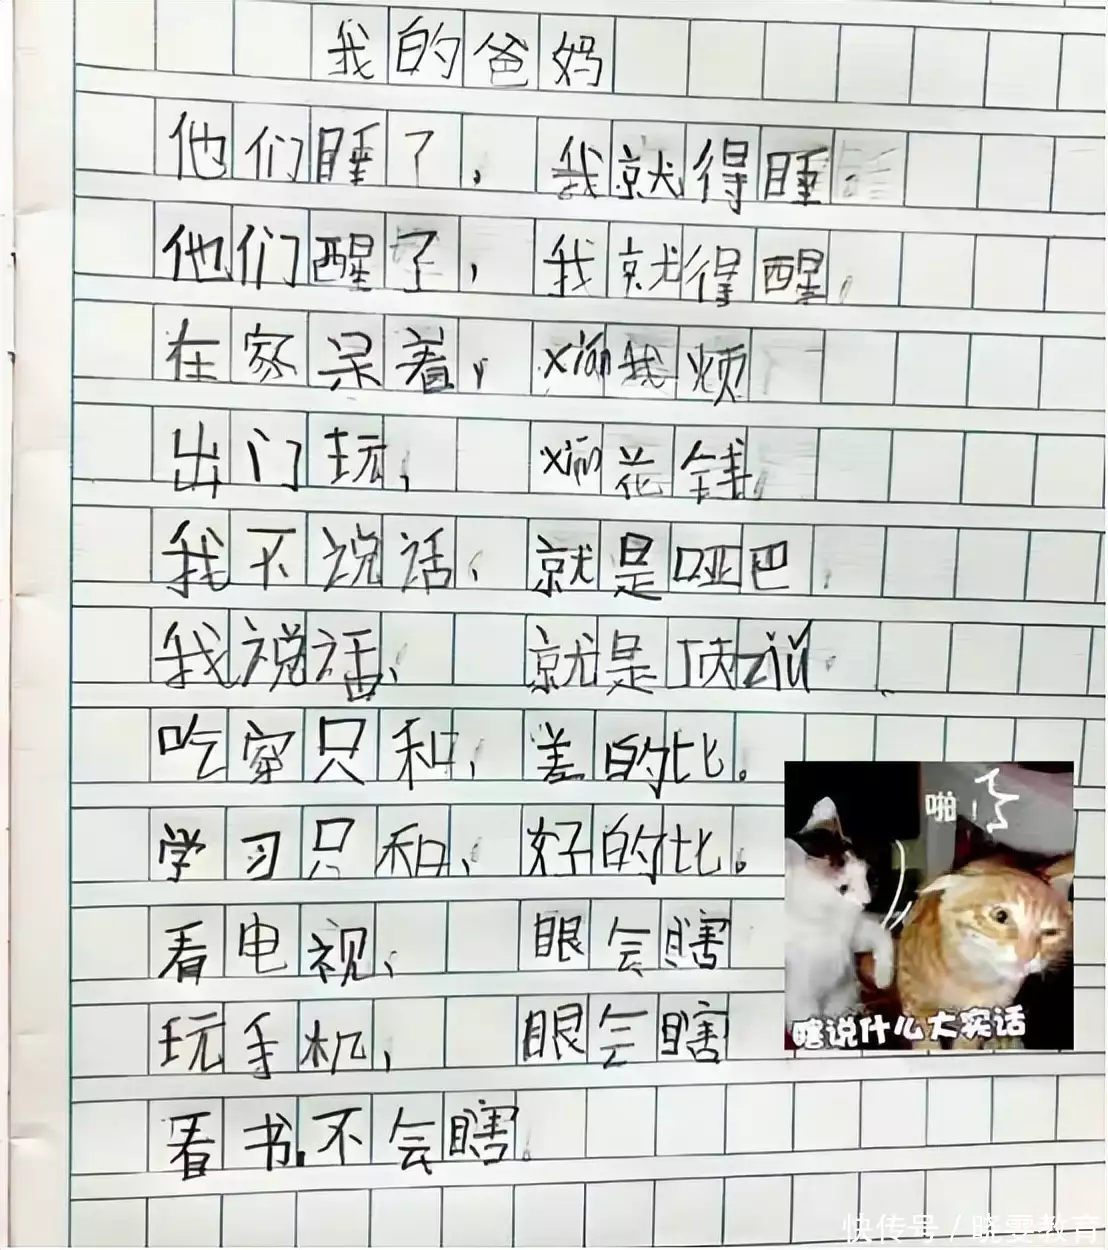 我的爸妈
他们睡了，我就得睡
他们醒了，我就得醒，
在家呆着，xián我烦
出门玩，xián花钱，
我不说话，就是哑巴，
我说话，就是顶zuǐ.
吃穿只和，差的比。
学习只和，好的比。
看电视，眼会瞎
玩手机，眼会瞎
看书不会瞎。
啪
瞎说什么大实话
快传号/晓雯教育